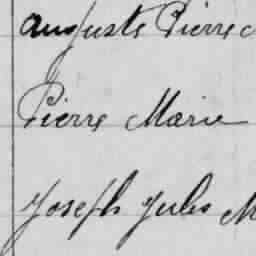 Auguste Pierre
Pierre Marie
Joseph Jules M